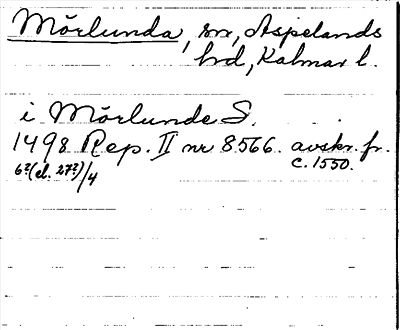 Mörlunda, sn, Aspelands
hd, Kalmar l.
i Mörlunde S.
1498 Rep. II nr 8566 avskr. fr.
6?(el. 27?)/4 c. 1550.